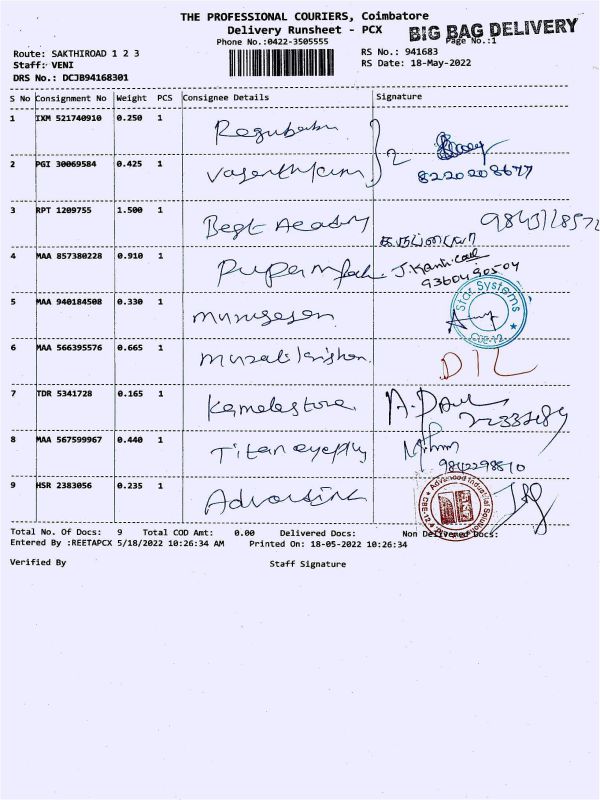 THE PROFESSIONAL COURIERS, Coimbatore
Delivery Runsheet - PCX
BIG BAG DELIVERY
Phone No.:0422-3505555
Page No.:1
Route: SAKTHIROAD 1 2 3
RS No.: 941683
Staff: VENI
RS Date: 18-May-2022
DRS No.: DCJB94168301
S No Consignment No Weight PCS Consignee Details Signature
1 IXM 521740910 0.250 1 Regubabu
2 PGI 30069584 0.425 1 2
8220208677
3 RPT 1209755 1.500 1 Best Academy
4 MAA 857380228 0.910 1 J. Kanti
93604 90504
5 MAA 940184508 0.330 1 Murugesan
Star Systems
CBE-12
6 MAA 566395576 0.665 1 Muralikrishan. DIL
7 TDR 5341728 0.165 1 Kamalastore A. Paul
8 MAA 567599967 0.440 1 Titan eyeplus
9842298510
9 HSR 2383056 0.235 1
Advanced Industrial Solution
CBE-12
Total No. Of Docs: 9 Total COD Amt: 0.00 Delivered Docs: Non Delivered Docs:
Entered By :REETAPCX 5/18/2022 10:26:34 AM Printed On: 18-05-2022 10:26:34
Verified By Staff Signature